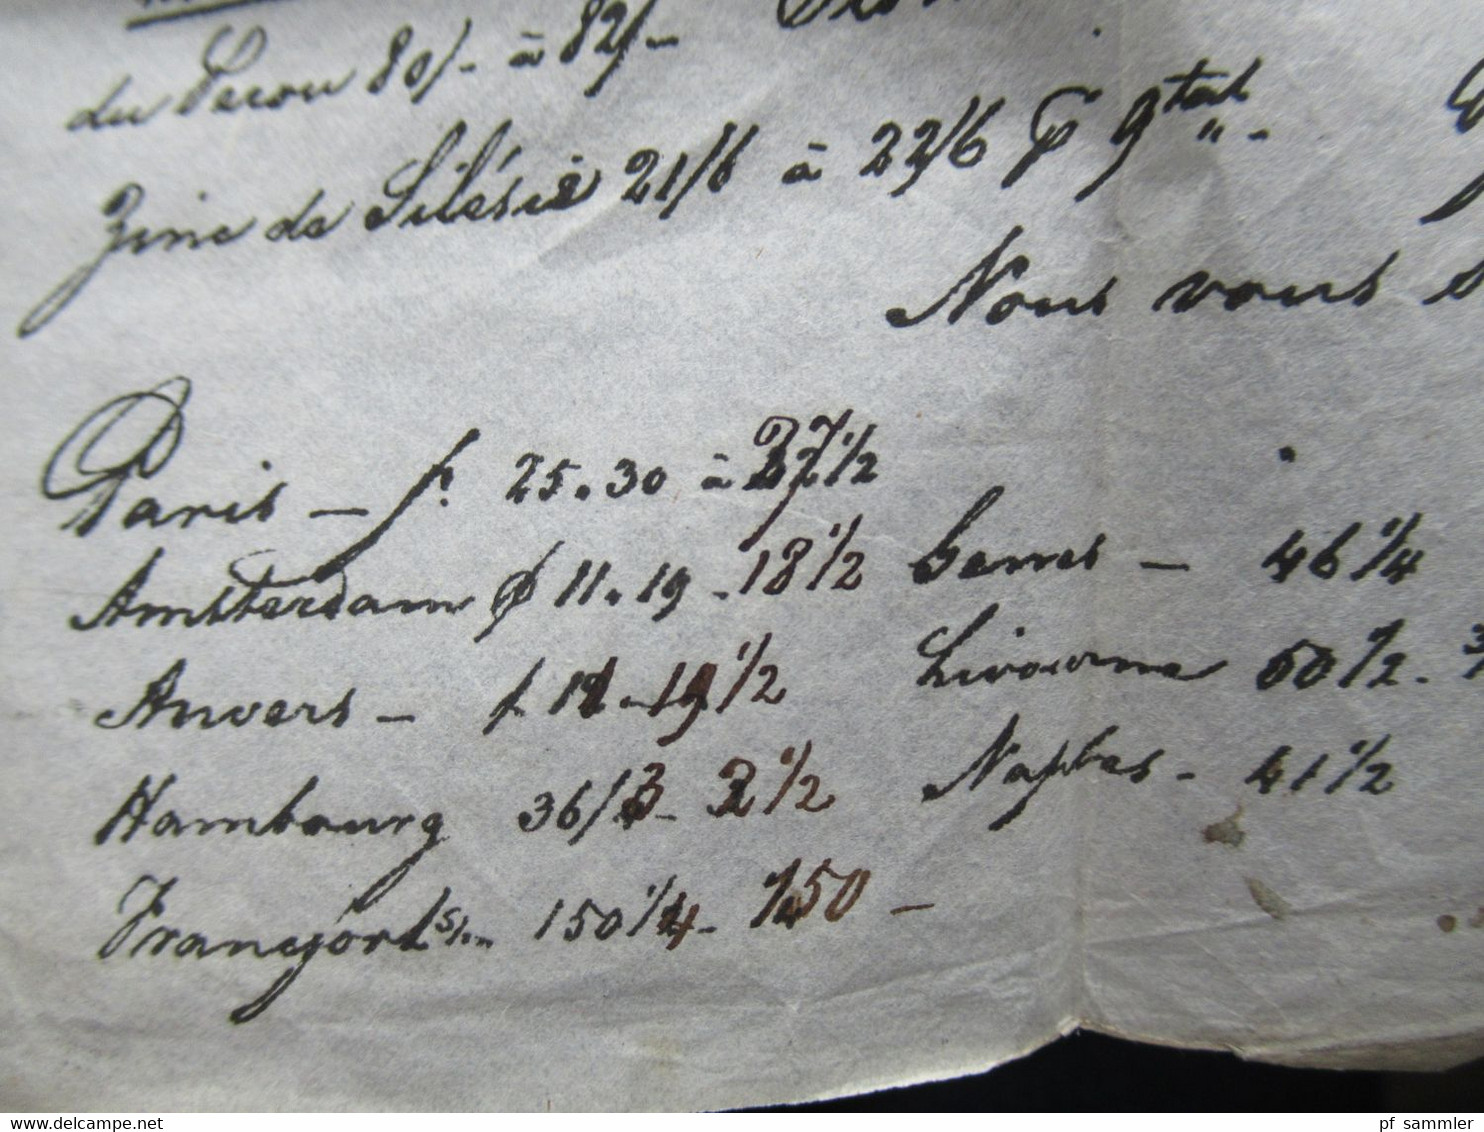 du Perou 80/- à 82/-
Zinc de Silésie 21/6 à 22/6 p qtal "-
Nous vous s
Paris — f. 25.30 à 37 1/2
Amsterdam 11.19 - 18 1/2 Genes — 46 1/4
Anvers — 19 1/2 Livourne 50 1/2.
Hambourg 36/3 - 2 1/2 Naples - 41 1/2
Francfort s/m 150 1/4 - 150 —
www.delcampe.net
pf_sammler